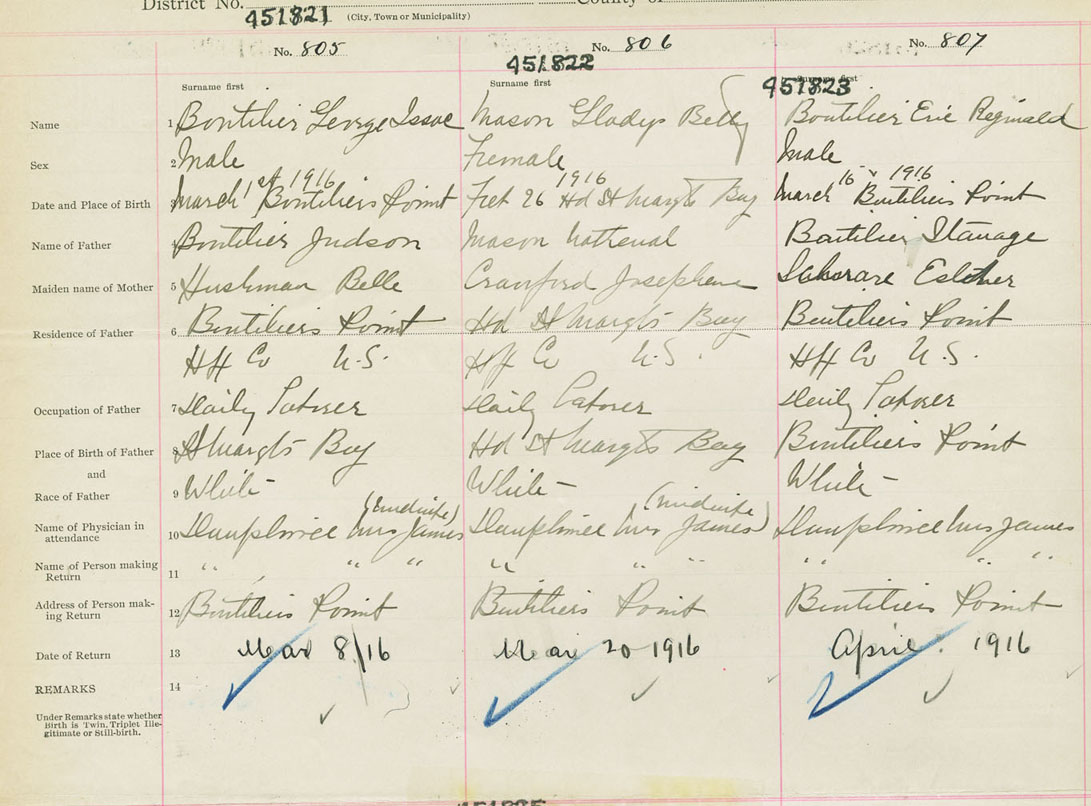 District No. County of
(City, Town or Municipality)
451821
No. 805
No. 806
No. 807
451822
451823
Surname first
Surname first
Surname first
Name 1 Boutilier George Issac Mason Gladys Betty Boutilier Eric Reginald
Sex 2 Male Female Male
Date and Place of Birth 3 March 1st 1916 Boutiliers Point Feb 26 1916 Hd St Margts Bay March 16 1916 Boutiliers Point
Name of Father Boutilier Judson Mason Boutilier
Maiden name of Mother 5 Belle Crawford Josephene
Residence of Father 6 Boutiliers Point Hd St Margts Bay Boutiliers Point
Hfx Co N.S. Hfx Co N.S. Hfx Co N.S.
Occupation of Father 7 Daily Laborer Daily Laborer Daily Laborer
Place of Birth of Father 8 St Margts Bay Hd St Margts Bay Boutiliers Point
and
Race of Father 9 White White White
Name of Physician in
attendance 10 Dauphinee Mrs James (midwife) Dauphinee Mrs James (midwife) Dauphinee Mrs James
Name of Person making
Return 11 " " " " " " " " "
Address of Person mak-
ing Return 12 Boutiliers Point Boutiliers Point Boutiliers Point
Date of Return 13 Mar 8/16 Mar 20 1916 April 1916
REMARKS 14
Under Remarks state whether
Birth is Twin, Triplet Ille-
gitimate or Still-birth.